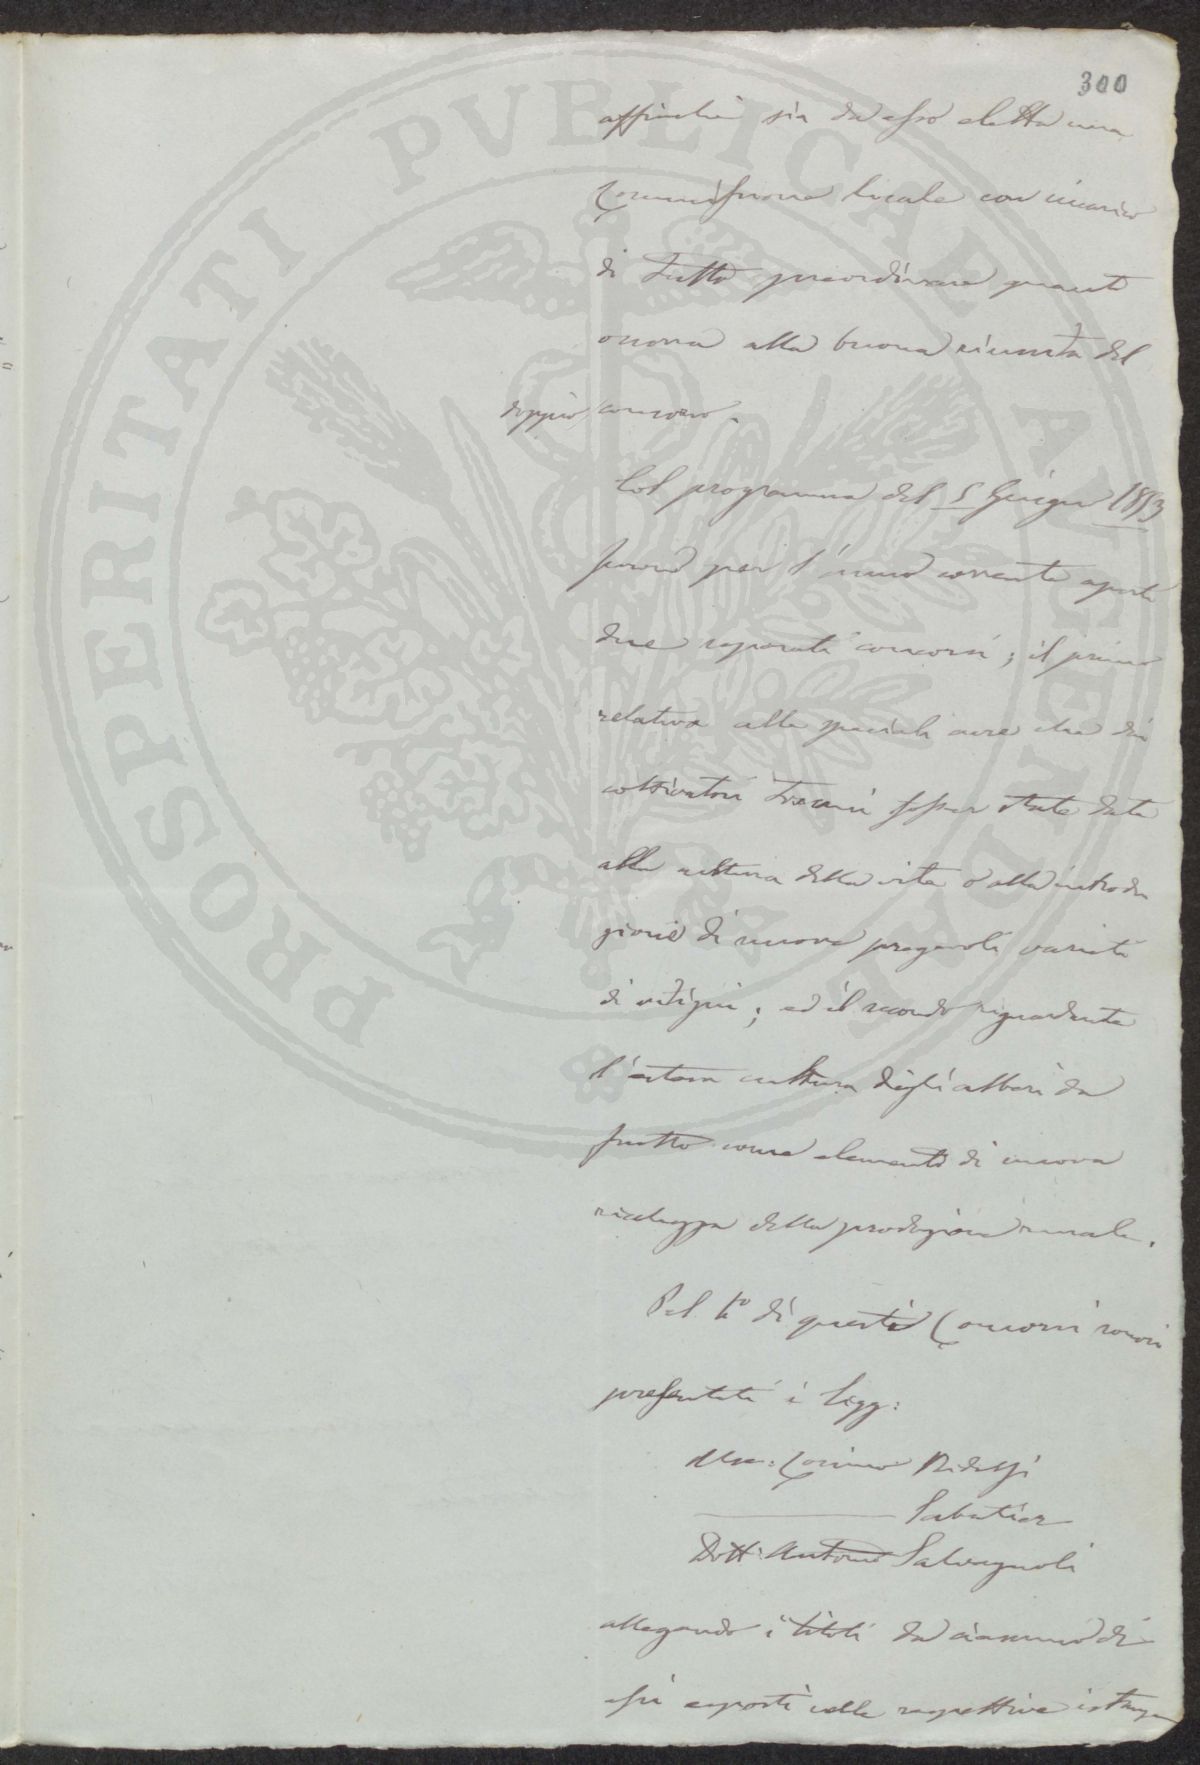 300
affinché sia da esso eletta una
Commissione locale con incarico
di tutto preordinare quanto
occorra alla buona riuscita del
doppio concorso.
Col programma del 5 Giugno 1853
furono per l'anno corrente aperti
due separati concorsi; il primo
relativo alle speciali cure che dai
coltivatori Toscani fosser state date
alla cultura della vite o alla introdu
zione di nuove pregevoli varietà
di vitigni; ed il secondo riguardante
l'estesa cultura degli alberi da
frutto come elemento di nuova
ricchezza della produzione rurale.
Pel 1º di questi Concorsi sonosi
presentati i Sigg:
Mse: Cosimo Ridolfi
Sabatier
Dott: Antonio Salvagnoli
allegando i titoli da ciascuno di
essi esposti nelle respettive istanze
PROSPERITATI PVBLICAE AVGENDAE